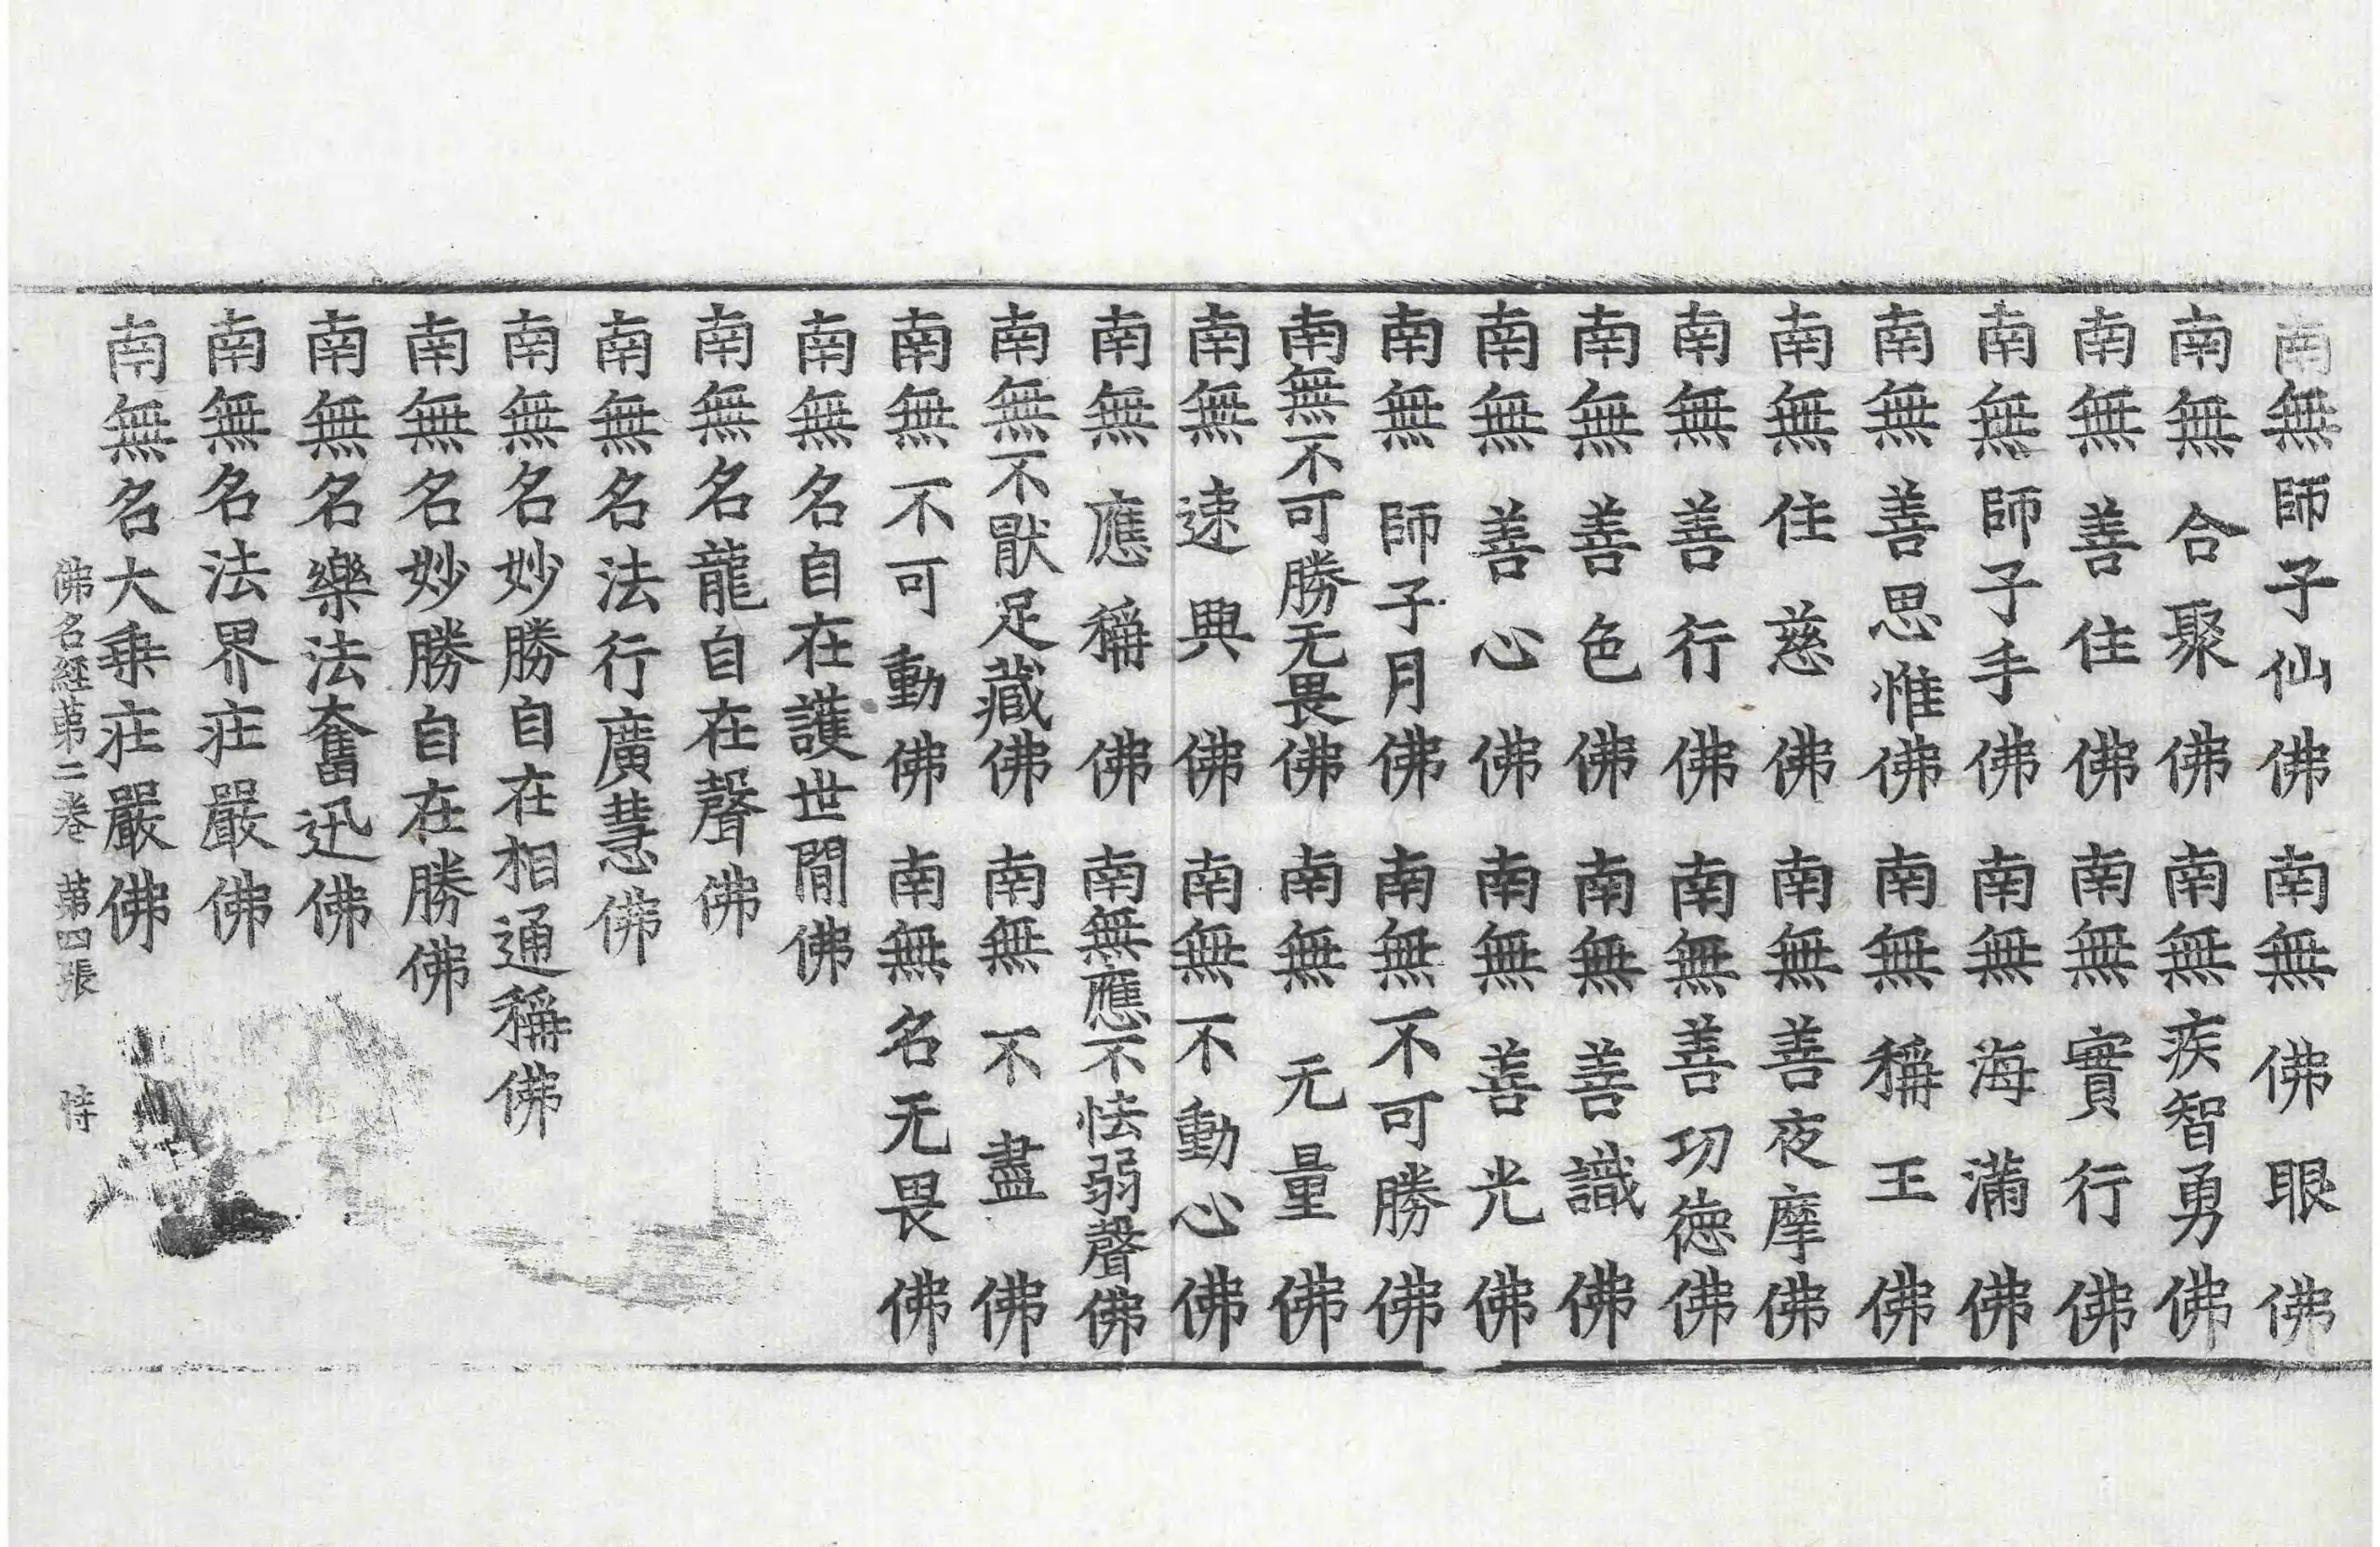 南無師子仙佛　南無佛眼佛
南無合聚佛　南無疾智勇佛
南無善住佛　南無實行佛
南無師子手佛　南無海滿佛
南無善思惟佛　南無稱王佛
南無住慈佛　南無善夜摩佛
南無善行佛　南無善功德佛
南無善色佛　南無善識佛
南無善心佛　南無善光佛
南無師子月佛　南無不可勝佛
南無不可勝无畏佛　南無无量佛
南無速興佛　南無不動心佛
南無應稱佛　南無應不怯弱聲佛
南無不猒足藏佛　南無不盡佛
南無不可動佛　南無名无畏佛
南無名自在護世間佛
南無名龍自在聲佛
南無名法行廣慧佛
南無名妙勝自在相通稱佛
南無名妙勝自在勝佛
南無名樂法奮迅佛
南無名法界庄嚴佛
南無名大乗庄嚴佛
佛名經第二卷　第四張